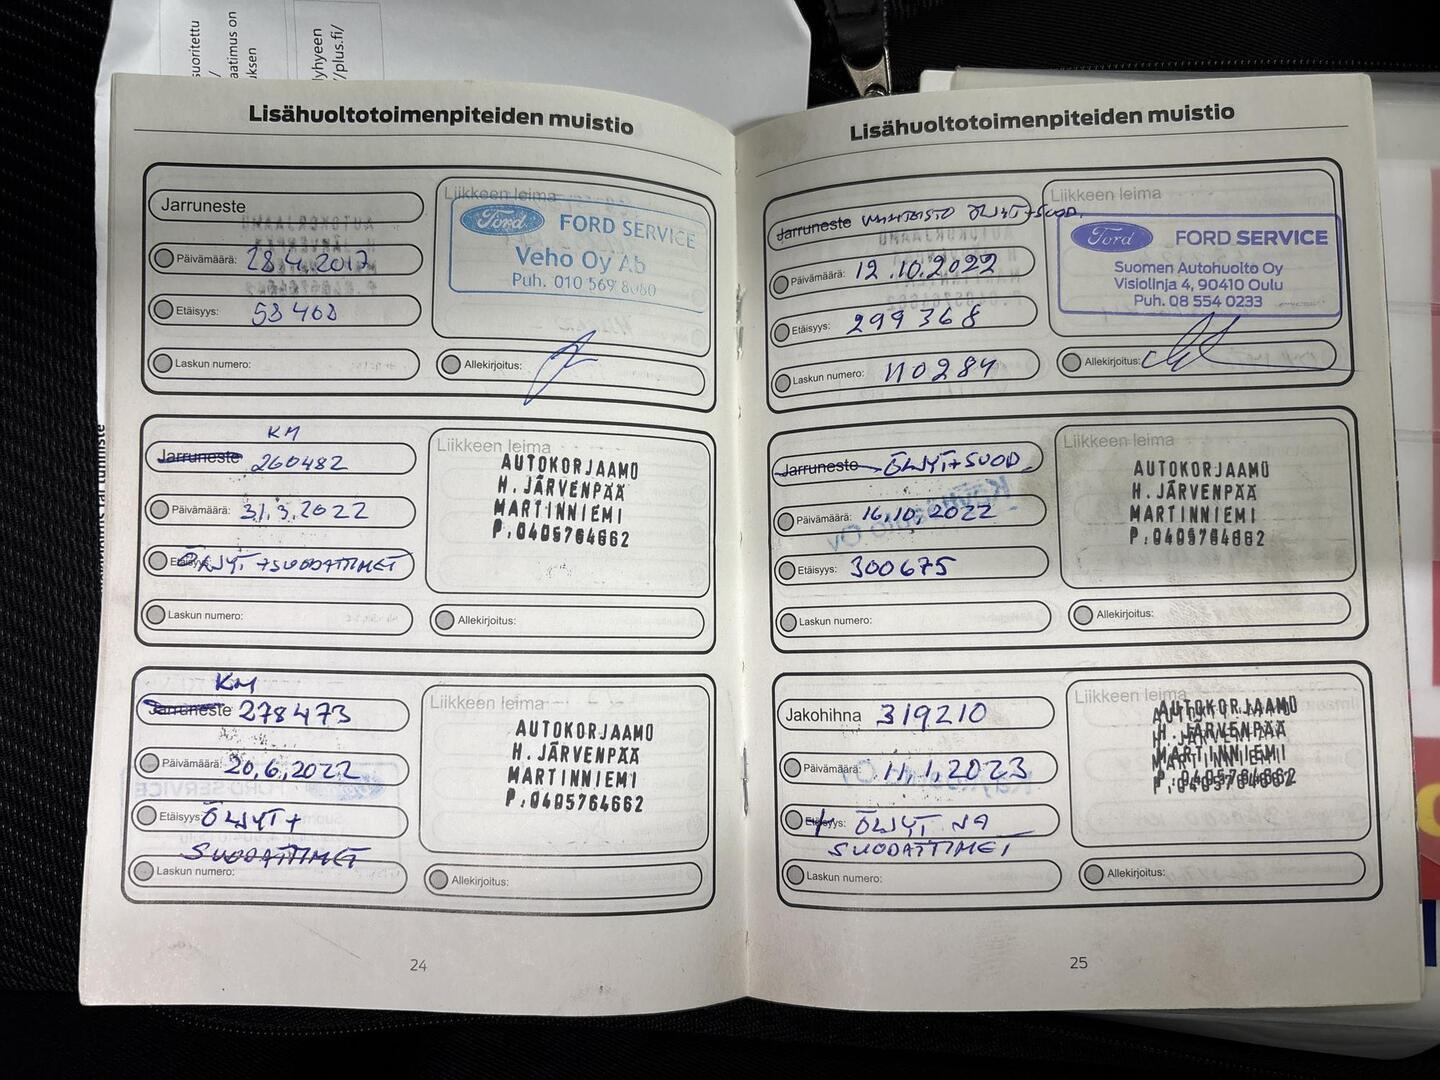 suoritettu
aatimus on
uksen
lyhyeen
//plus.fi/
Lisähuoltotoimenpiteiden muistio
Jarruneste
Päivämäärä: 28.4.2017
Etäisyys: 58 468
Laskun numero:
Liikkeen leima
Ford FORD SERVICE
Veho Oy Ab
Puh. 010 569 8080
Allekirjoitus:
KM
Jarruneste 260482
Päivämäärä: 31.3.2022
Etäisyys: ÖLJYT + SUODATTIMET
Laskun numero:
Liikkeen leima
AUTOKORJAAMO
H. JÄRVENPÄÄ
MARTINNIEMI
P.0405764662
Allekirjoitus:
KM
Jarruneste 278473
Päivämäärä: 20.6.2022
Etäisyys: ÖLJYT +
SUODATTIMET
Laskun numero:
Liikkeen leima
AUTOKORJAAMO
H. JÄRVENPÄÄ
MARTINNIEMI
P.0405764662
Allekirjoitus:
24
Lisähuoltotoimenpiteiden muistio
Jarruneste VAIHTEISTO ÖLJYT+SUOD.
Päivämäärä: 12.10.2022
Etäisyys: 299 368
Laskun numero: 110284
Liikkeen leima
Ford FORD SERVICE
Suomen Autohuolto Oy
Visiolinja 4, 90410 Oulu
Puh. 08 554 0233
Allekirjoitus:
Jarruneste ÖLJYT+SUOD.
Päivämäärä: 16.10.2022
Etäisyys: 300675
Laskun numero:
Liikkeen leima
AUTOKORJAAMO
H. JÄRVENPÄÄ
MARTINNIEMI
P.0405764662
Allekirjoitus:
Jakohihna 319210
Päivämäärä: 11.1.2023
Etäisyys: + ÖLJYT JA
SUODATTIMET
Laskun numero:
Liikkeen leima
AUTOKORJAAMO
H. JÄRVENPÄÄ
MARTINNIEMI
P.0405764662
Allekirjoitus:
25